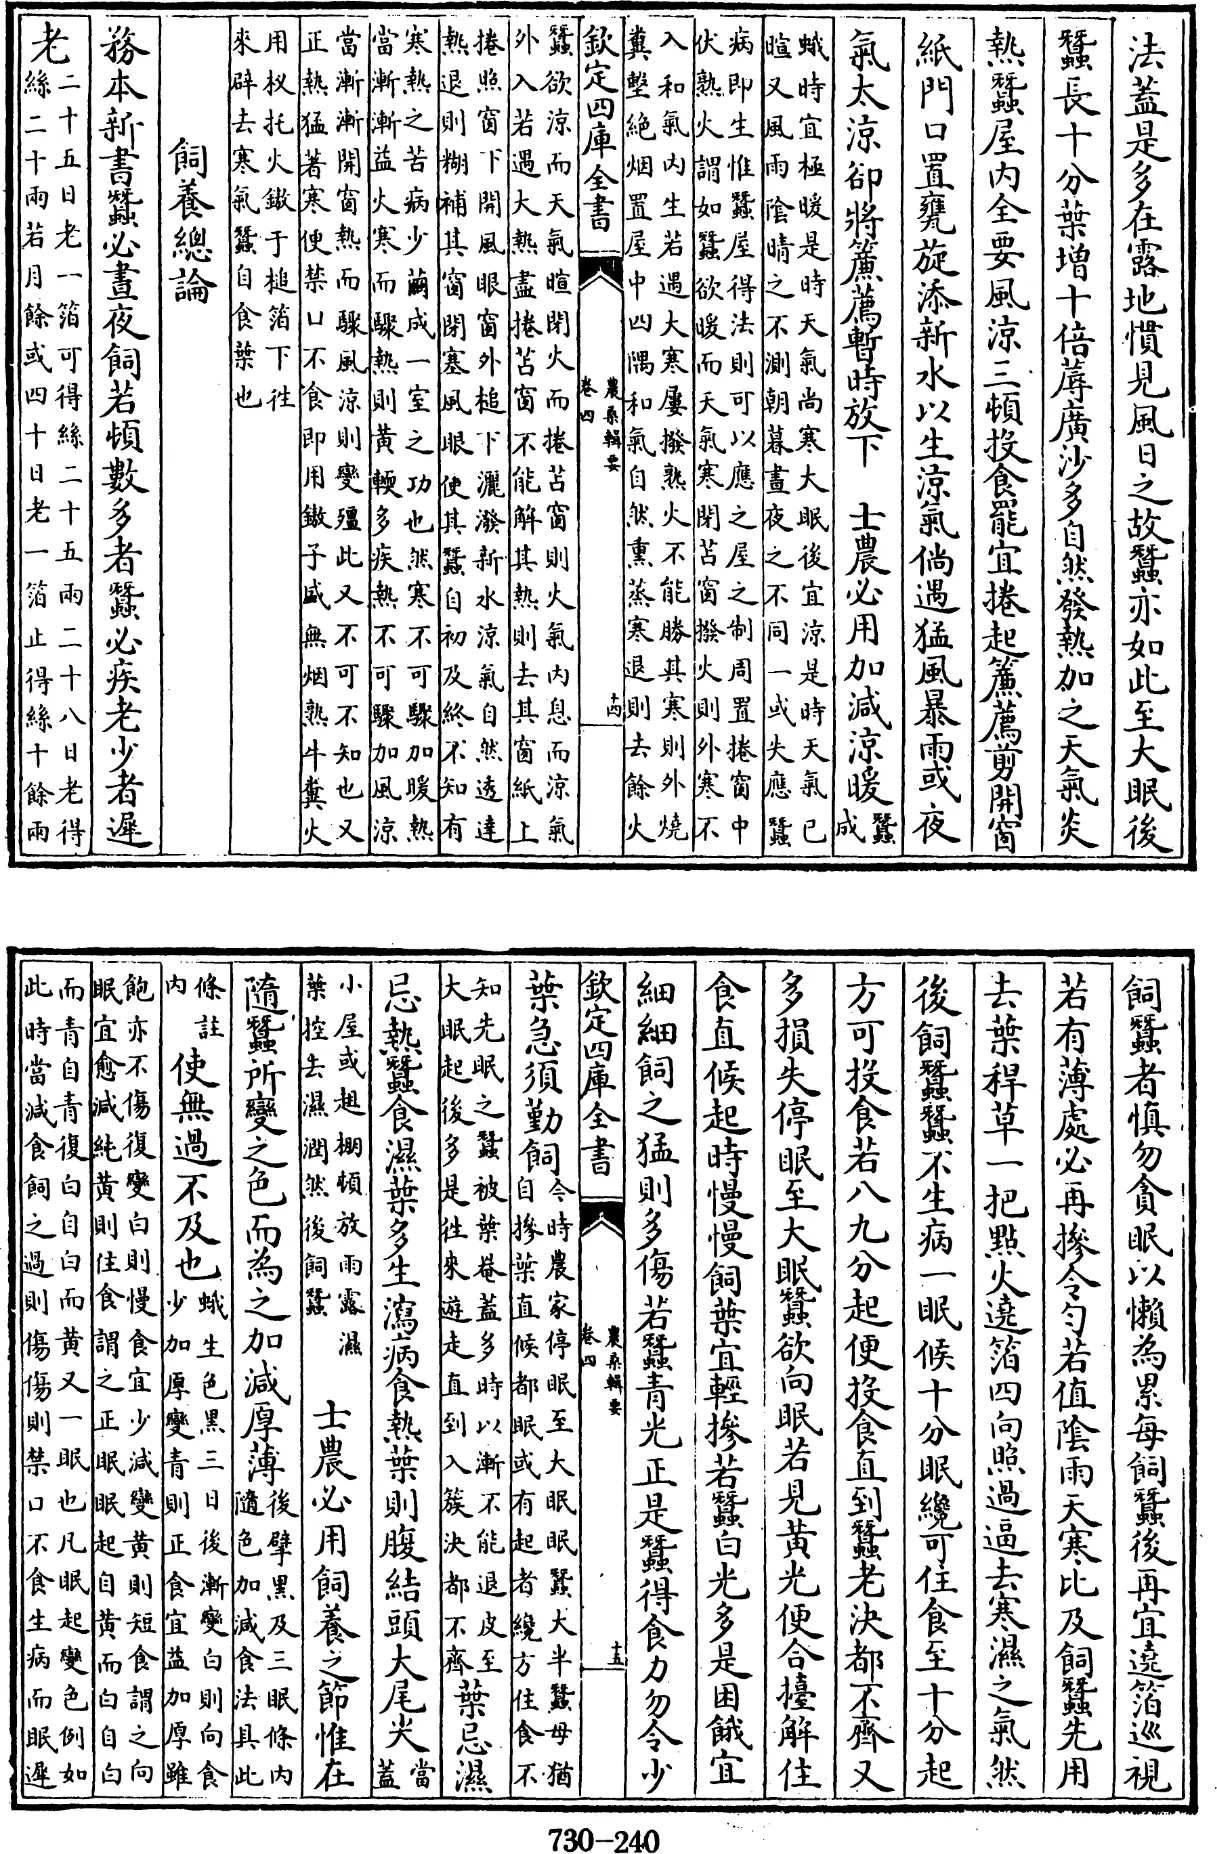 法蓋是多在露地慣見風日之故蠶亦如此至大眠後
蠶長十分葉增十倍蓐廣沙多自然發熱加之天氣炎
熱蠶屋内全要風涼三頓投食罷宜捲起簾薦剪開窗
紙門口置甕旋添新水以生涼氣倘遇猛風暴雨或夜
氣太涼卻將簾薦暫時放下　士農必用加減涼暖蠶
成
蛾時宜極暖是時天氣尚寒大眠後宜涼是時天氣已
暄又風雨陰晴之不測朝暮晝夜之不同一或失應蠶
病即生惟蠶屋得法則可以應之屋之制周置捲窗中
伏熟火謂如蠶欲暖而天氣寒閉苫窗撥火則外寒不
入和氣内生若遇大寒屢撥熟火不能勝其寒則外燒
糞墼絶烟置屋中四隅和氣自然熏蒸寒退則去餘火
欽定四庫全書
農桑輯要
卷四
十四
蠶欲涼而天氣暄閉火而捲苫窗則火氣内息而涼氣
外入若遇大熱盡捲苫窗不能解其熱則去其窗紙上
捲照窗下開風眼窗外槌下灑潑新水涼氣自然透達
熱退則糊補其窗閉塞風眼使其蠶自初及終不知有
寒熱之苦病少繭成一室之功也然寒不可驟加暖熱
當漸漸益火寒而驟熱則黃輭多疾熱不可驟加風涼
當漸漸開窗熱而驟風涼則變殭此又不可不知也又
正熱猛著寒便禁口不食即用鏾子盛無烟熟牛糞火
用杈托火鏾于槌箔下往
來辟去寒氣蠶自食葉也
飼養總論
務本新書蠶必晝夜飼若頓數多者蠶必疾老少者遲
老二十五日老一箔可得絲二十五兩二十八日老得
絲二十兩若月餘或四十日老一箔止得絲十餘兩
飼蠶者慎勿貪眠以懶為累每飼蠶後再宜遶箔巡視
若有薄處必再摻令勻若值陰雨天寒比及飼蠶先用
去葉稈草一把點火遶箔四向照過逼去寒濕之氣然
後飼蠶蠶不生病一眠候十分眠纔可住食至十分起
方可投食若八九分起便投食直到蠶老決都不齊又
多損失停眠至大眠蠶欲向眠若見黃光便合擡解住
食直候起時慢慢飼葉宜輕摻若蠶白光多是困餓宜
細細飼之猛則多傷若蠶青光正是蠶得食力勿令少
欽定四庫全書
農桑輯要
卷四
十五
葉急須勤飼今時農家停眠至大眠眠蠶大半蠶母猶
自摻葉直候都眠或有起者纔方住食不
知先眠之蠶被葉菴蓋多時以漸不能退皮至
大眠起後多是往來遊走直到入簇決都不齊葉忌濕
忌熱蠶食濕葉多生瀉病食熱葉則腹結頭大尾尖當
蓋
小屋或趄棚頓放雨露濕
葉控去濕潤然後飼蠶　士農必用飼養之節惟在
隨蠶所變之色而為之加減厚薄後擘黑及三眠條内
隨色加減食法具此
條註
内使無過不及也蛾生色黑三日後漸變白則向食
少加厚變青則正食宜益加厚雖
飽亦不傷復變白則慢食宜少減變黃則短食謂之向
眠宜愈減純黃則住食謂之正眠眠起自黃而白自白
而青自青復白自白而黃又一眠也凡眠起變色例如
此時當減食飼之過則傷傷則禁口不食生病而眠遲
730-240